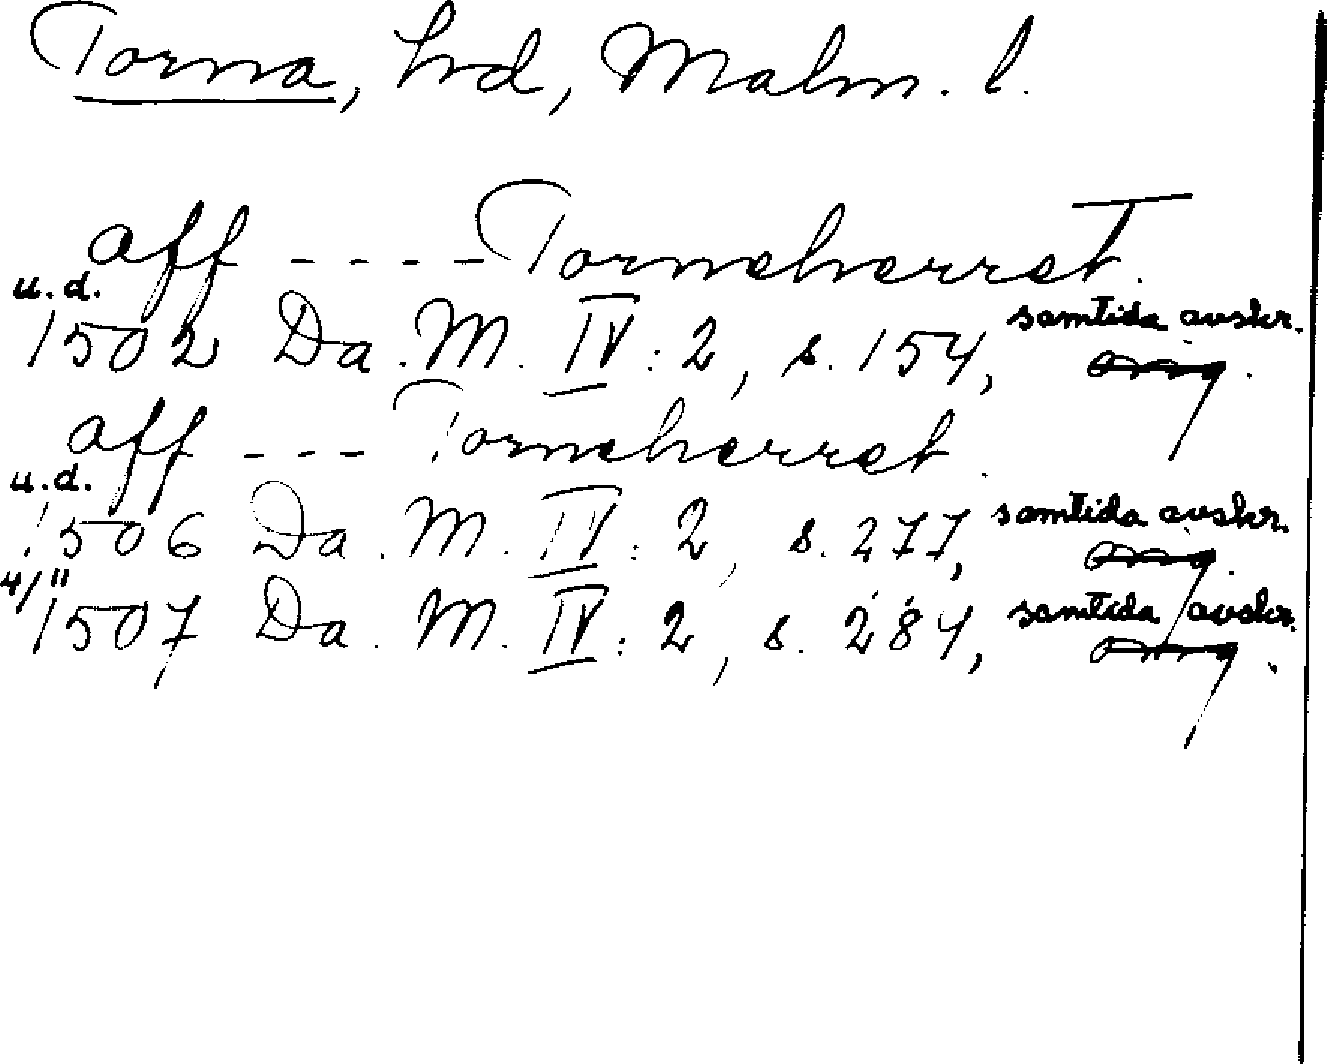 Torna, hd, Malm. l.
aff - - - - Torneherret.
u.d.
1502 Da. M. IV: 2, s. 154, samtida avskr.
aff - - - Torneherret.
u.d.
1506 Da. M. IV: 2, s. 277, samtida avskr.
4/11
1507 Da. M. IV: 2, s. 284, samtida avskr.